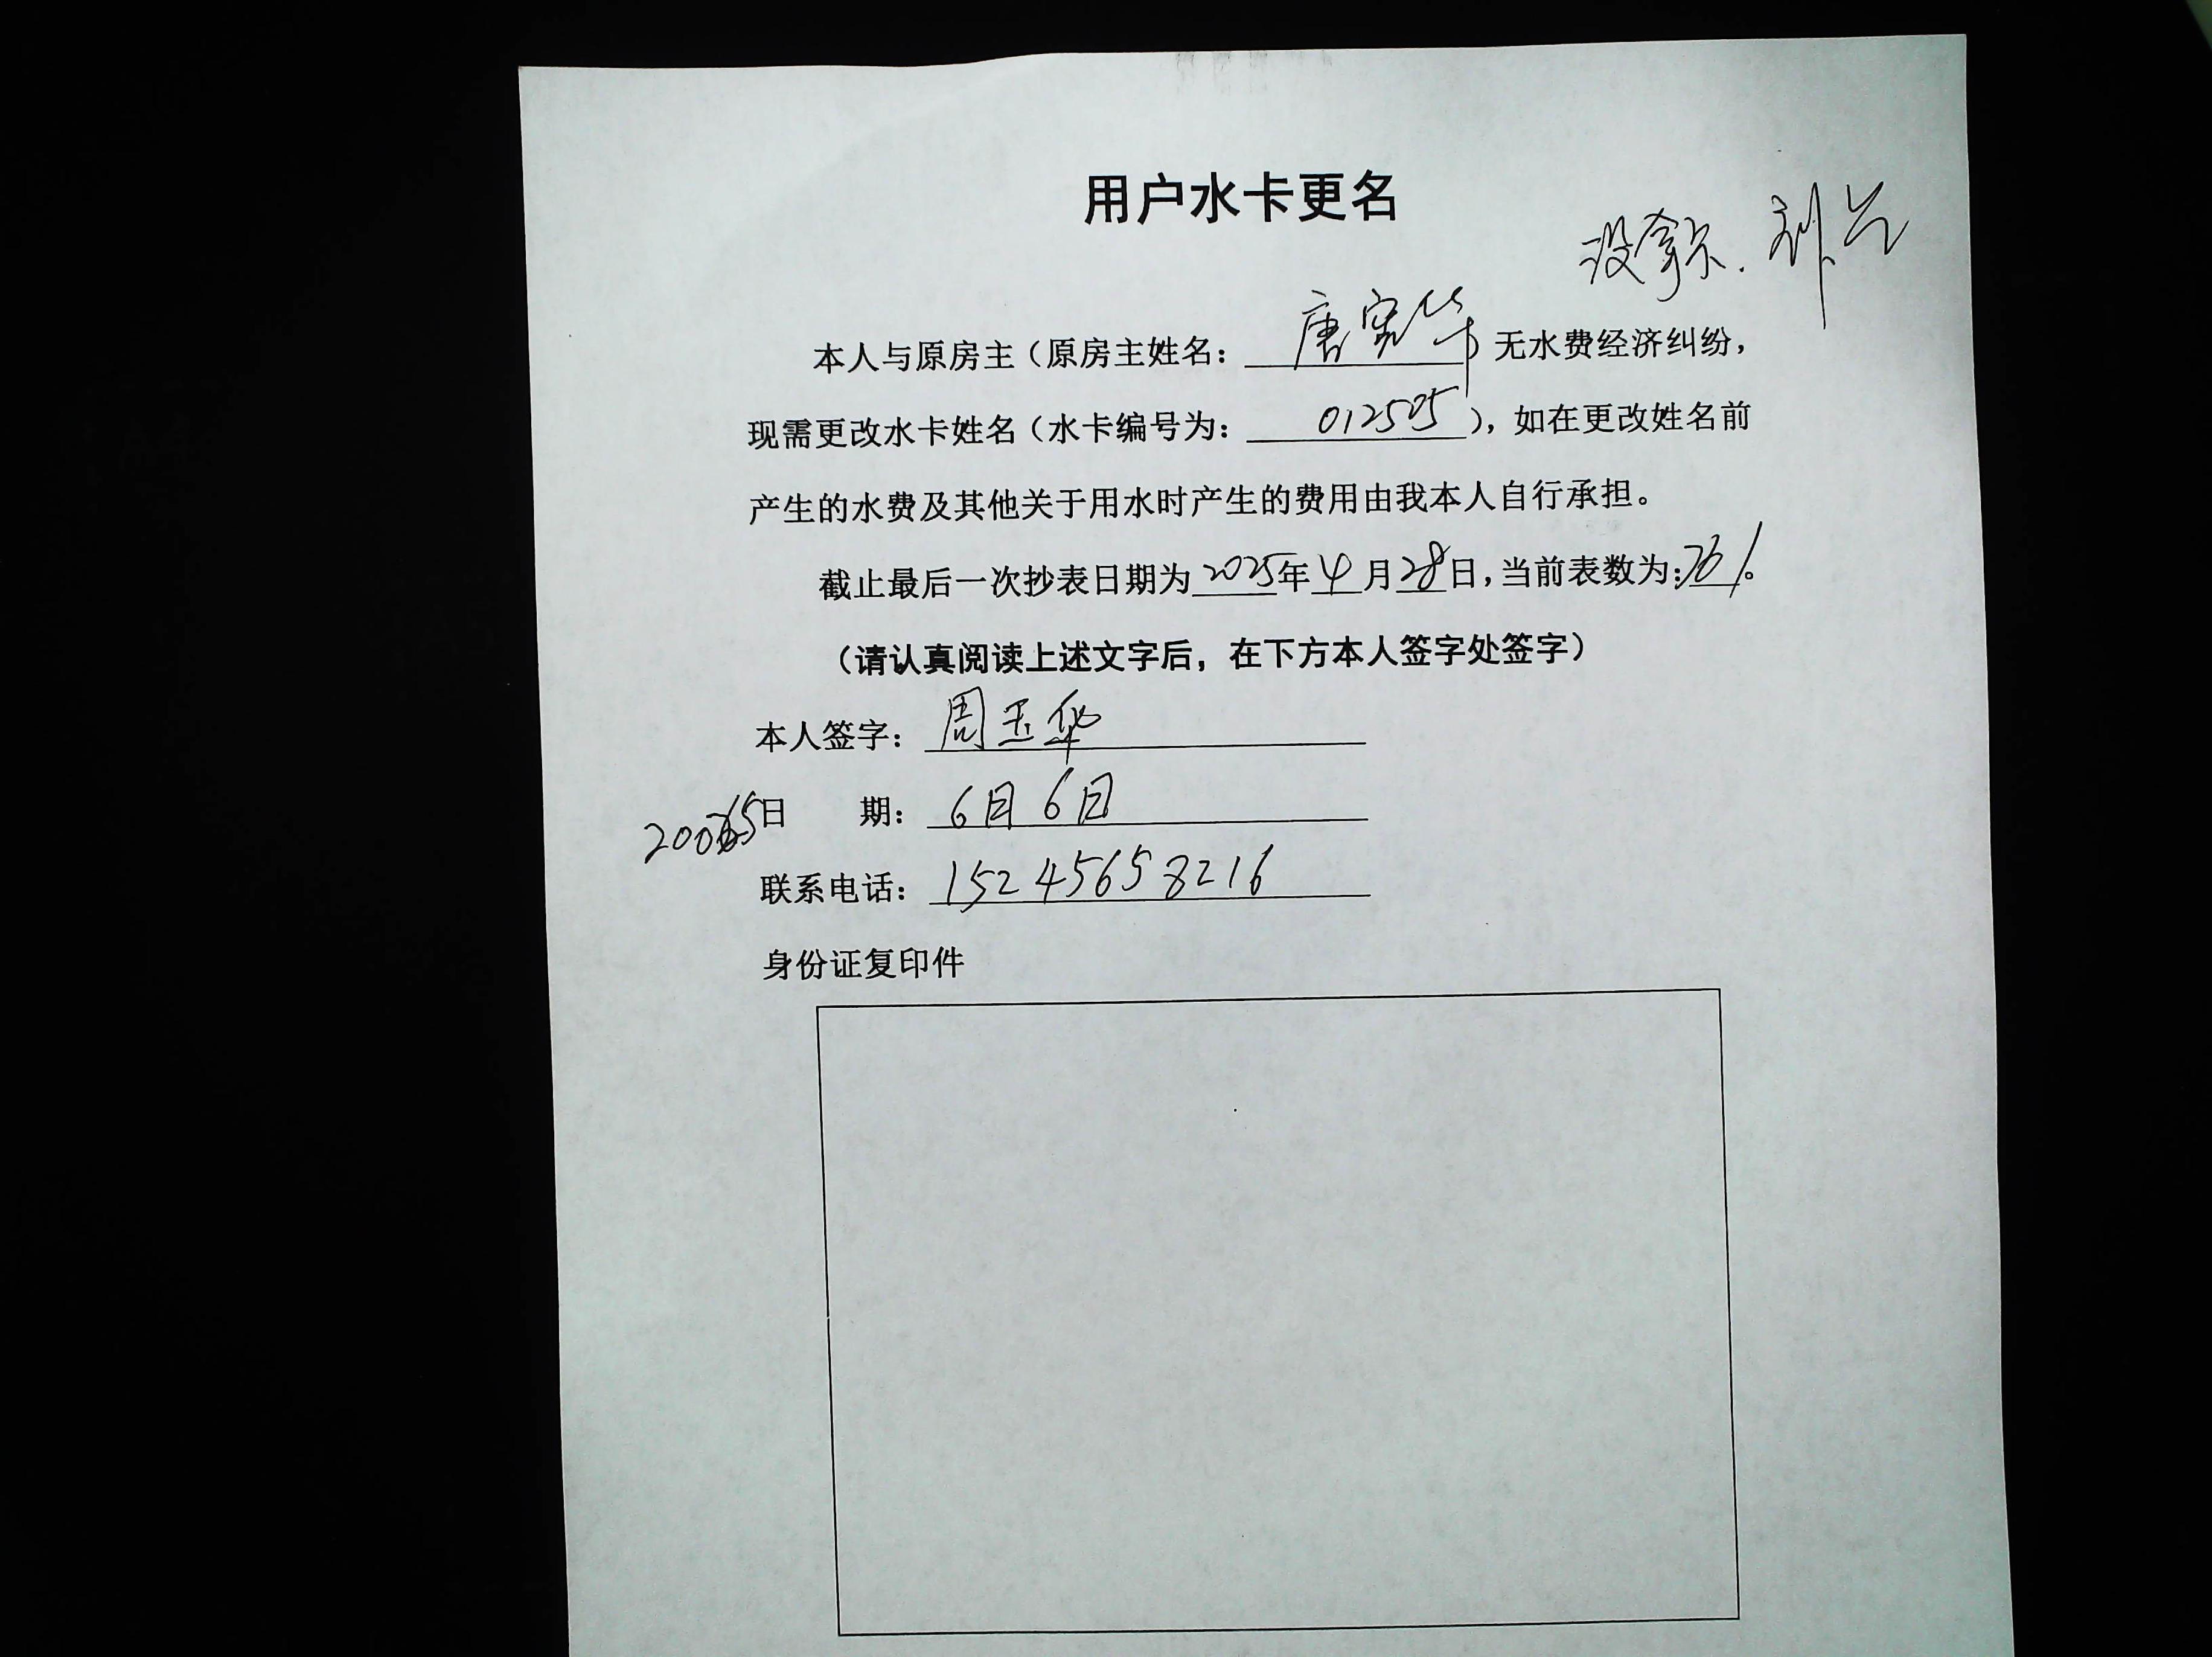 用户水卡更名
没拿卡. 刘
本人与原房主（原房主姓名：唐宪华）无水费经济纠纷，
现需更改水卡姓名（水卡编号为：012505），如在更改姓名前
产生的水费及其他关于用水时产生的费用由我本人自行承担。
截止最后一次抄表日期为2025年4月28日，当前表数为：
（请认真阅读上述文字后，在下方本人签字处签字）
本人签字：周玉华
日 期：6月6日
联系电话：15245658216
身份证复印件